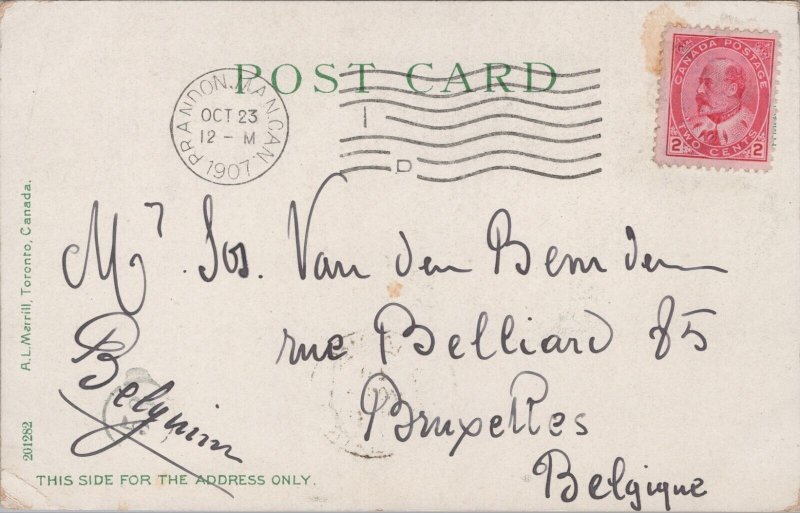 POST CARD
BRANDON, MAN. CAN.
OCT 23
12 - M
1907
I
D
CANADA POSTAGE
2 TWO CENTS 2
Mr Jos. Van den Bemden
rue Belliard 85
Bruxelles
Belgique
Belgium
A.L. Merrill, Toronto, Canada.
201282
THIS SIDE FOR THE ADDRESS ONLY.